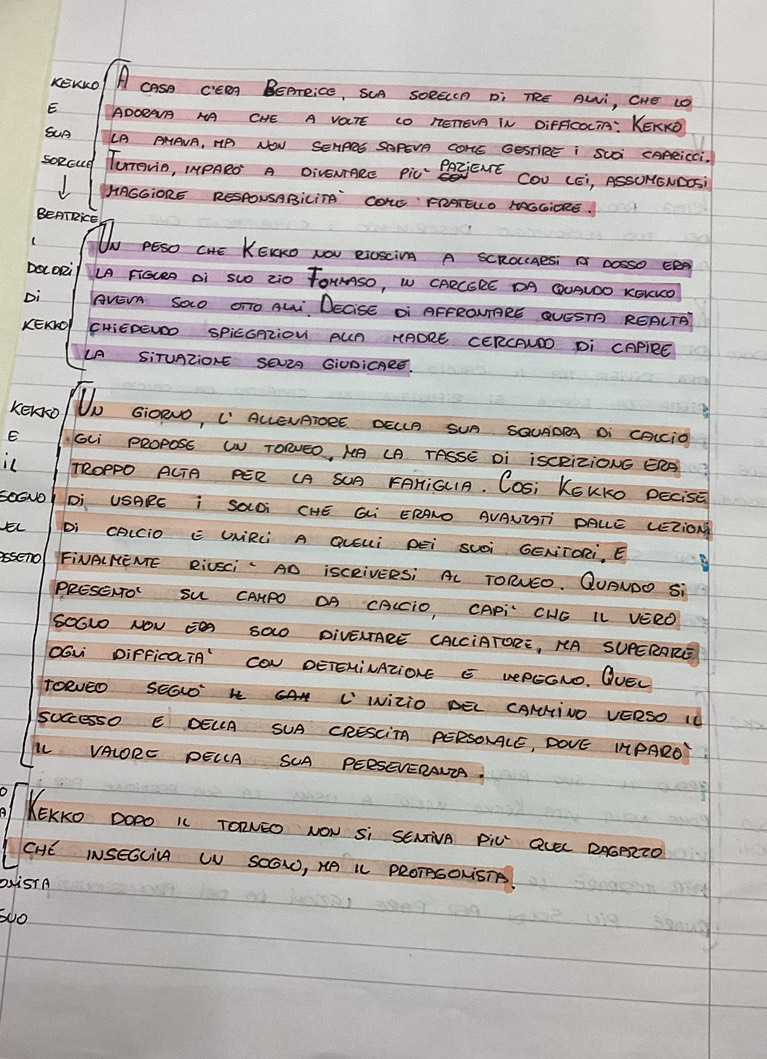 KEKKO
E
SUA
SORELLE
↓
BEATRICE
A CASA C'ERA BEATRICE, SUA SORELLA DI TRE ANNI, CHE LO
ADORAVA MA CHE A VOLTE LO METTEVA IN DIFFICOLTÀ. KEKKO
LA AMAVA, MA NON SEMPRE SAPEVA COME GESTIRE I SUOI CAPRICCI.
TUTTAVIA, IMPARÒ A DIVENTARE PIÙ PAZIENTE CON LEI, ASSUMENDOSI
MAGGIORE RESPONSABILITÀ COME FRATELLO MAGGIORE.
I
DOLORI
DI
KEKKO
UN PESO CHE KEKKO NON RIUSCIVA A SCROLLARSI DI DOSSO ERA
LA FIGURA DI SUO ZIO TOMMASO, IN CARCERE DA QUANDO KEKKO
AVEVA SOLO OTTO ANNI. DECISE DI AFFRONTARE QUESTA REALTÀ
CHIEDENDO SPIEGAZIONI ALLA MADRE CERCANDO DI CAPIRE
LA SITUAZIONE SENZA GIUDICARE.
KEKKO
E
IL
SOGNO
NEL
ASSETTO
UN GIORNO, L'ALLENATORE DELLA SUA SQUADRA DI CALCIO
GLI PROPOSE UN TORNEO, MA LA TASSE DI ISCRIZIONE ERA
TROPPO ALTA PER LA SUA FAMIGLIA. COSÌ KEKKO DECISE
DI USARE I SOLDI CHE GLI ERANO AVANZATI DALLE LEZIONI
DI CALCIO E UNIRLI A QUELLI DEI SUOI GENITORI. E
FINALMENTE RIUSCÌ AD ISCRIVERSI AL TORNEO. QUANDO SI
PRESENTÒ SUL CAMPO DA CALCIO, CAPÌ CHE IL VERO
SOGNO NON ERA SOLO DIVENTARE CALCIATORE, MA SUPERARE
OGNI DIFFICOLTÀ CON DETEMINAZIONE E IMPEGNO. QUEL
TORNEO SEGNÒ L'INIZIO DEL CAMMINO VERSO IL
SUCCESSO E DELLA SUA CRESCITA PERSONALE, DOVE IMPARÒ
IL VALORE DELLA SUA PERSEVERANZA.
KEKKO DOPO IL TORNEO NON SI SENTIVA PIÙ QUEL RAGAZZO
CHÉ INSEGUIVA UN SOGNO, MA IL PROTAGONISTA.
ONISTA
SUO